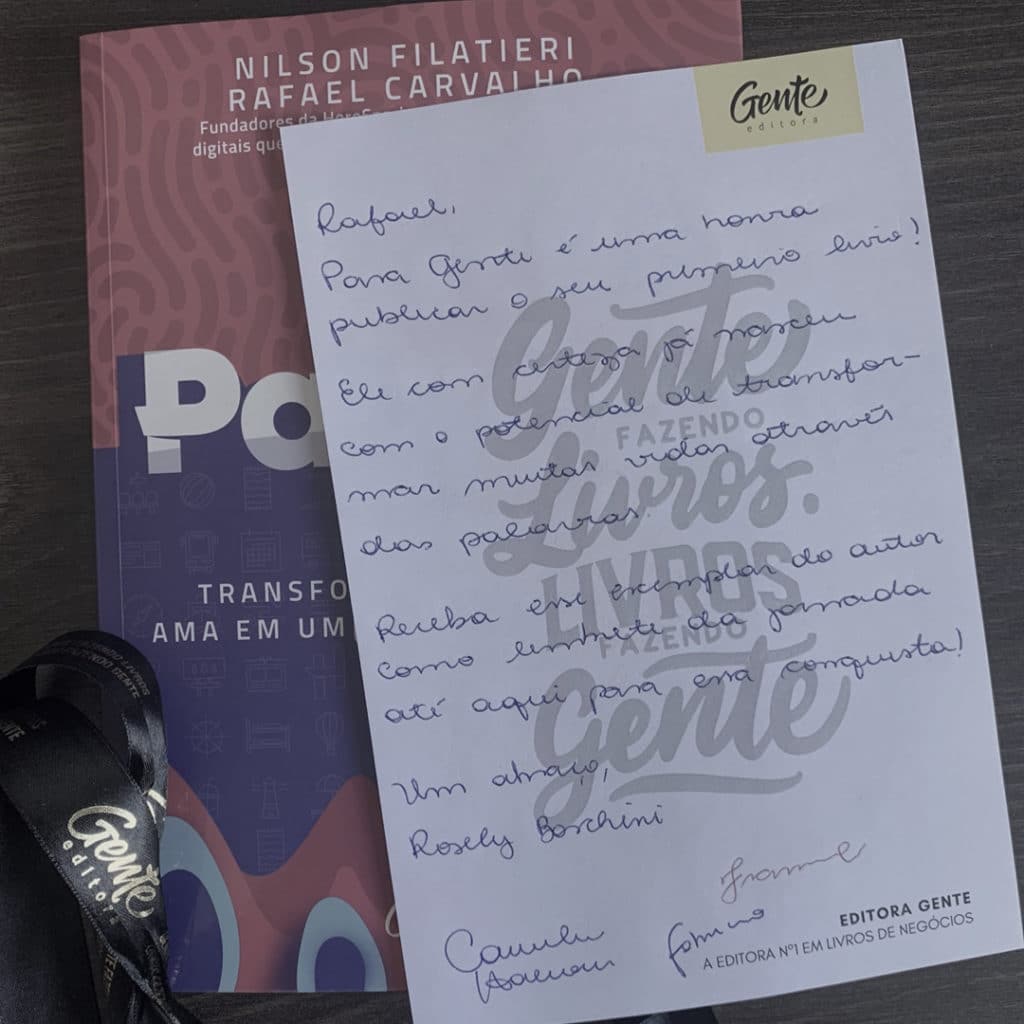 NILSON FILATIERI
RAFAEL CARVALHO
Fundadores da
digitais que
Pa
TRANSFO
AMA EM UM
Gente
editora
Rafael,
Para Gente é uma honra
publicar o seu primeiro livro!
Ele com certeza já nasceu
com o potencial de transfor-
mar muitas vidas através
das palavras.
Receba esse exemplar do autor
como lembrete da jornada
até aqui para essa conquista!
Um abraço,
Rosely Boschini
Gente
FAZENDO
Livros.
LIVROS
FAZENDO
Gente
EDITORA GENTE
A EDITORA Nº1 EM LIVROS DE NEGÓCIOS
Gente
editora